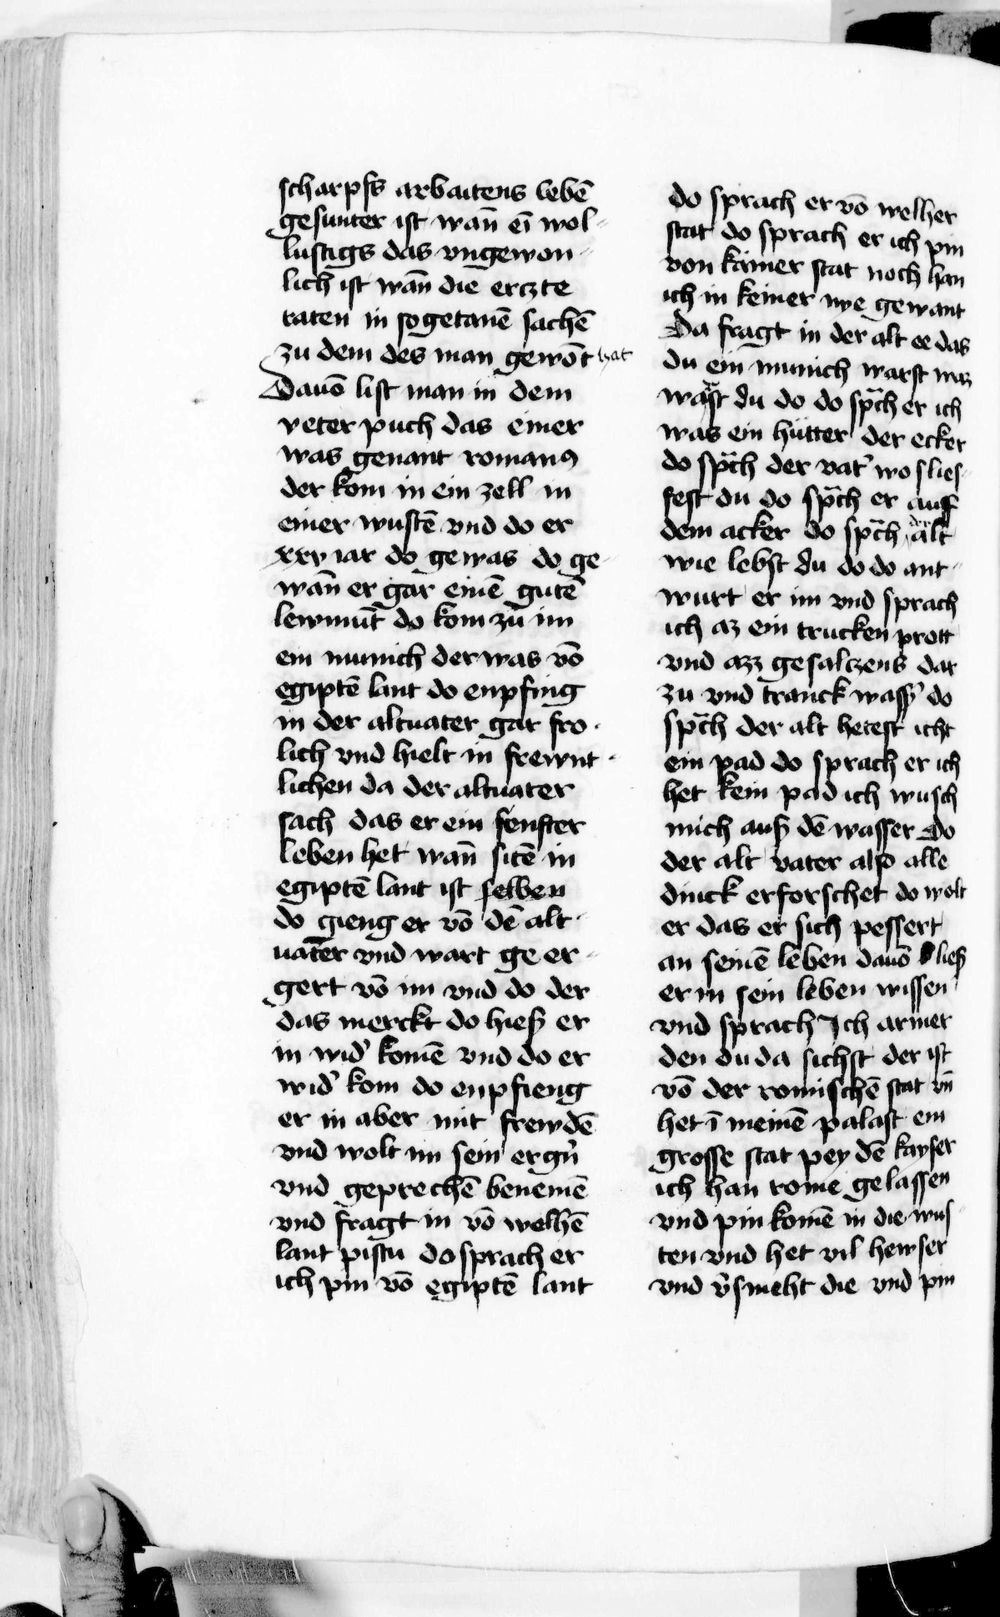 scharpfs arbaitens lebē
gesunter ist wan̄ eī wol-
lustigs das vngewon-
lich ist wan̄ die erczte
raten in sogetanē sachē
zu dem des man gewōt hat
Dauō list man in dem
veter puch das einer
was genant romanꝰ
der kom in ein zell in
einer wustē vnd do er
xxv iar do gewas do ge-
wan̄ er gar einē gutē
lewmūt do kom zu im
ein munich der was vō
egiptē lant do enpfing
in der altuater gar fro-
lich vnd hielt in frewnt-
lichen da der altuater
sach das er ein senfter
leben het wan̄ sitē in
egiptē lant ist selben
do gieng er vō dē alt-
uater vnd wart ge er-
gert vō im vnd do der
das merckt do hieß er
in wid' komē vnd do er
wid' kom do enpfieng
er in aber mit frewdē
vnd wolt im sein ergū
vnd geprechē benemē
vnd fragt in vō welhē
lant pistu do sprach er
ich pin vō egiptē lant
do sprach er vō welher
stat do sprach er ich pin
von kainer stat noch han
ich in keiner nye gewant
Da fragt in der alt ee das
du ein munich warst waz
wast du do do sp̄ch er ich
was ein hütter der ecker
do sp̄ch der vat' wo slief-
fest du do sp̄ch er auf
dem acker do sp̄ch der alt
wie lebst du do do ant-
wurt er im vnd sprach
ich az ein trucken prott
vnd azz gesalczens dar
zu vnd tranck wass' do
sp̄ch der alt hetest icht
ein pad do sprach er ich
het kein pad ich wusch
mich auß dē wasser Do
der alt vater also alle
dinck erforschet do wolt
er das er sich pessert
an seinē leben dauō ließ
er in sein leben wissen
vnd sprach Ich armer
den du da sichst der ist
vō der romischē stat vn̄
het ī meinē palast ein
grosse stat pey dē kayser
ich han rome gelassen
vnd pin komē in die wus
ten vnd het vil hewser
vnd v̄smeht die vnd pin